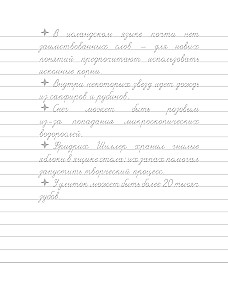 В исландском языке почти нет
заимствованных слов – для новых
понятий предпочитают использовать
исконные корни.
Внутри некоторых звёзд идёт дождь
из сапфиров и рубинов.
Снег может быть розовым
из-за попадания микроскопических
водорослей.
Фридрих Шиллер хранил гнилые
яблоки в ящике стола: их запах помогал
запустить творческий процесс.
У улиток может быть более 20 тысяч
зубов.